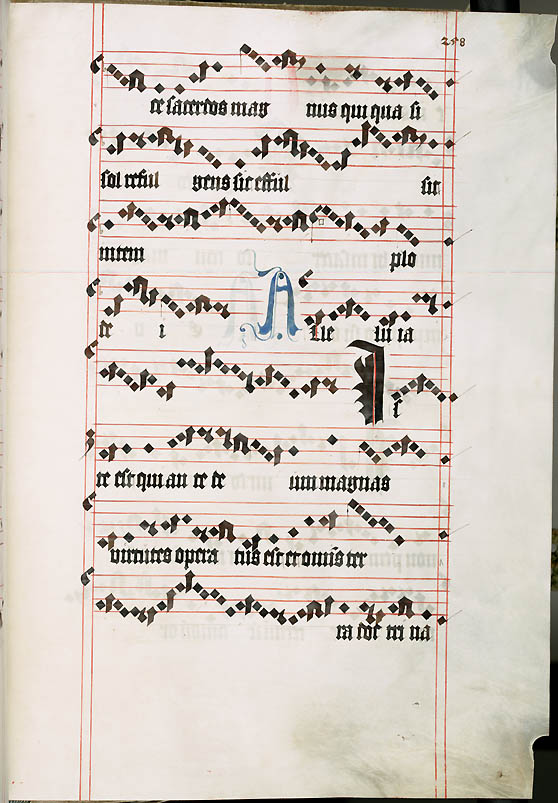 258
te sacerdos mag nus qui qua si
sol reful gens sic efful sit
intem plo
de i Alle lu ia
Ii
te est qui an te de um magnas
virtutes opera tus est et omnis ter
ra doc tri na